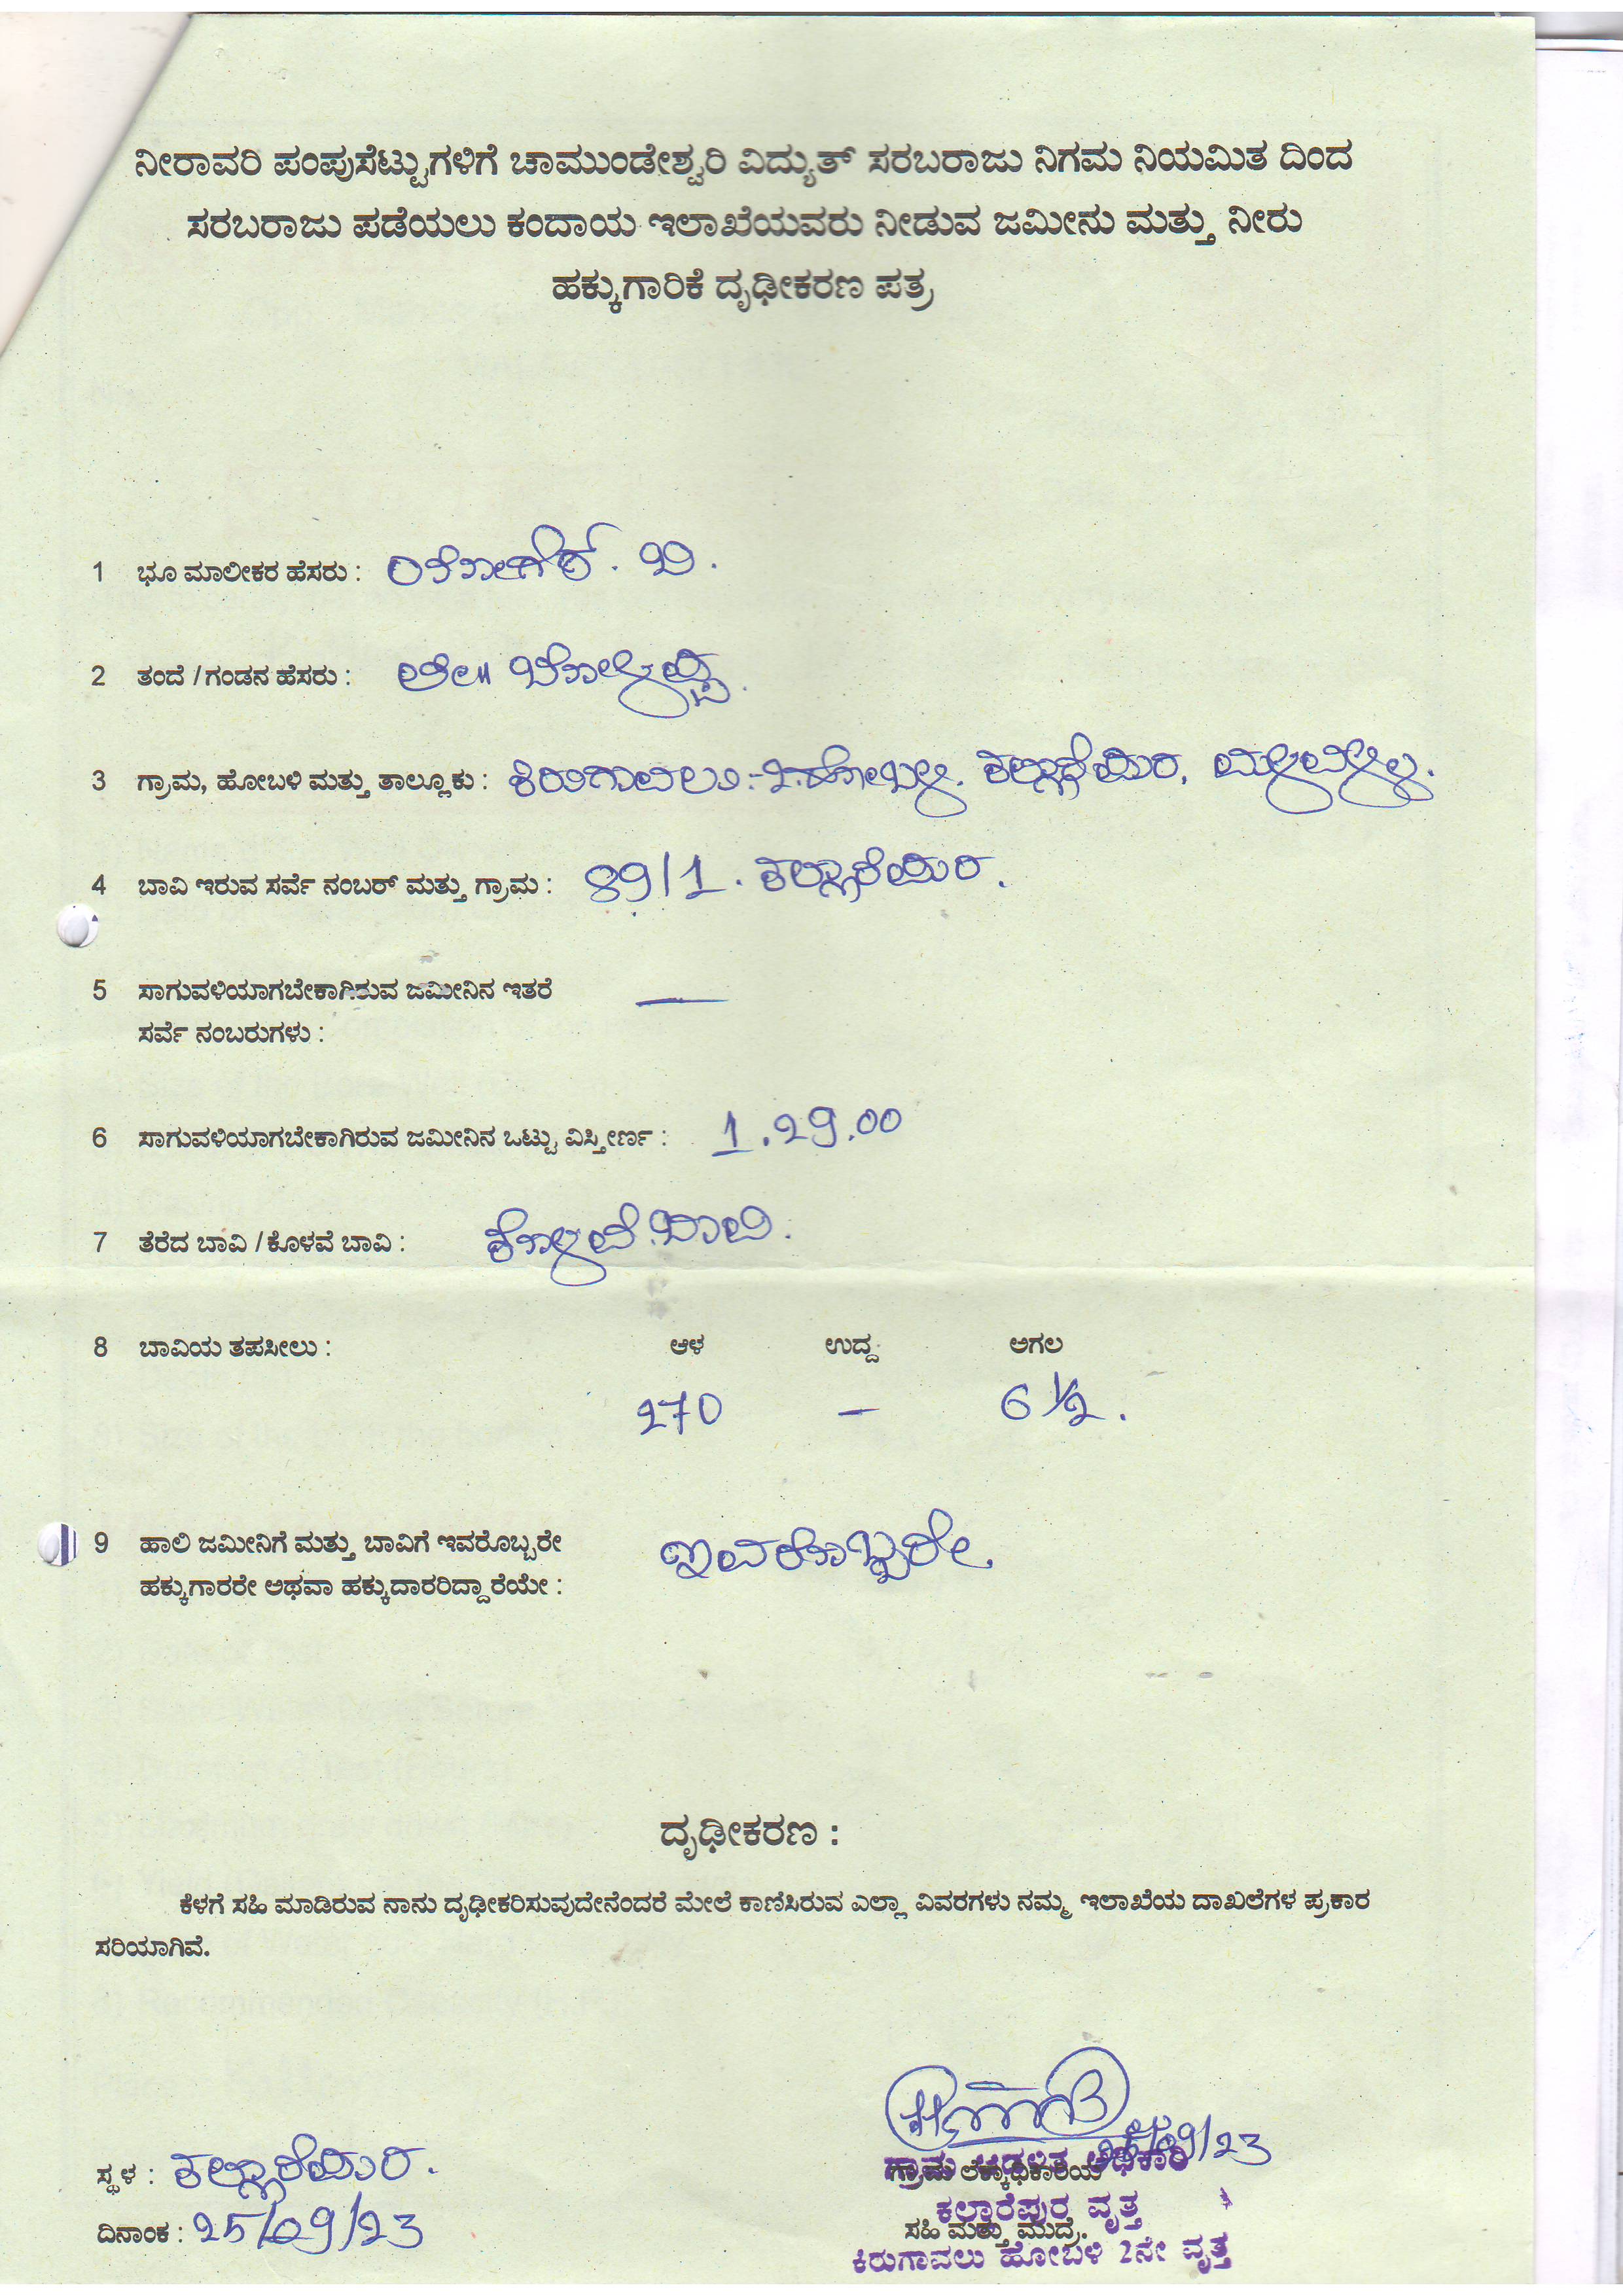 ನೀರಾವರಿ ಪಂಪುಸೆಟ್ಟುಗಳಿಗೆ ಚಾಮುಂಡೇಶ್ವರಿ ವಿದ್ಯುತ್ ಸರಬರಾಜು ನಿಗಮ ನಿಯಮಿತ ದಿಂದ
ಸರಬರಾಜು ಪಡೆಯಲು ಕಂದಾಯ ಇಲಾಖೆಯವರು ನೀಡುವ ಜಮೀನು ಮತ್ತು ನೀರು
ಹಕ್ಕುಗಾರಿಕೆ ದೃಢೀಕರಣ ಪತ್ರ
1 ಭೂ ಮಾಲೀಕರ ಹೆಸರು : ಬಿ.
2 ತಂದೆ /ಗಂಡನ ಹೆಸರು : ಲೇ॥ ಬೊಳ್ಳಪ್ಪ.
3 ಗ್ರಾಮ, ಹೋಬಳಿ ಮತ್ತು ತಾಲ್ಲೂಕು : ಕಿರುಗಾವಲು-2.ಹೋಬಳಿ. ಕಲ್ಲಾರೆಪುರ, ಮಳವಳ್ಳಿ.
4 ಬಾವಿ ಇರುವ ಸರ್ವೆ ನಂಬರ್ ಮತ್ತು ಗ್ರಾಮ : 89/1. ಕಲ್ಲಾರೆಪುರ.
5 ಸಾಗುವಳಿಯಾಗಬೇಕಾಗಿರುವ ಜಮೀನಿನ ಇತರೆ —
ಸರ್ವೆ ನಂಬರುಗಳು :
6 ಸಾಗುವಳಿಯಾಗಬೇಕಾಗಿರುವ ಜಮೀನಿನ ಒಟ್ಟು ವಿಸ್ತೀರ್ಣ : 1.29.00
7 ತೆರೆದ ಬಾವಿ /ಕೊಳವೆ ಬಾವಿ : ಕೊಳವೆ ಬಾವಿ.
8 ಬಾವಿಯ ತಪಸೀಲು : ಆಳ ಉದ್ದ ಅಗಲ
270 – 6 ½.
9 ಹಾಲಿ ಜಮೀನಿಗೆ ಮತ್ತು ಬಾವಿಗೆ ಇವರೊಬ್ಬರೇ ಇವರೊಬ್ಬರೇ.
ಹಕ್ಕುಗಾರರೇ ಅಥವಾ ಹಕ್ಕುದಾರರಿದ್ದಾರೆಯೇ :
ದೃಢೀಕರಣ :
ಕೆಳಗೆ ಸಹಿ ಮಾಡಿರುವ ನಾನು ದೃಢೀಕರಿಸುವುದೇನೆಂದರೆ ಮೇಲೆ ಕಾಣಿಸಿರುವ ಎಲ್ಲಾ ವಿವರಗಳು ನಮ್ಮ ಇಲಾಖೆಯ ದಾಖಲೆಗಳ ಪ್ರಕಾರ
ಸರಿಯಾಗಿವೆ.
25/09/23
ಸ್ಥಳ : ಕಲ್ಲಾರೆಪುರ.
ಗ್ರಾಮ ಲೆಕ್ಕಾಧಿಕಾರಿಯ
ಗ್ರಾಮ ಆಡಳಿತ ಅಧಿಕಾರಿ
ಕಲ್ಲಾರೆಪುರ ವೃತ್ತ
ದಿನಾಂಕ : 25/09/23
ಸಹಿ ಮತ್ತು ಮುದ್ರೆ.
ಕಿರುಗಾವಲು ಹೋಬಳಿ 2ನೇ ವೃತ್ತ